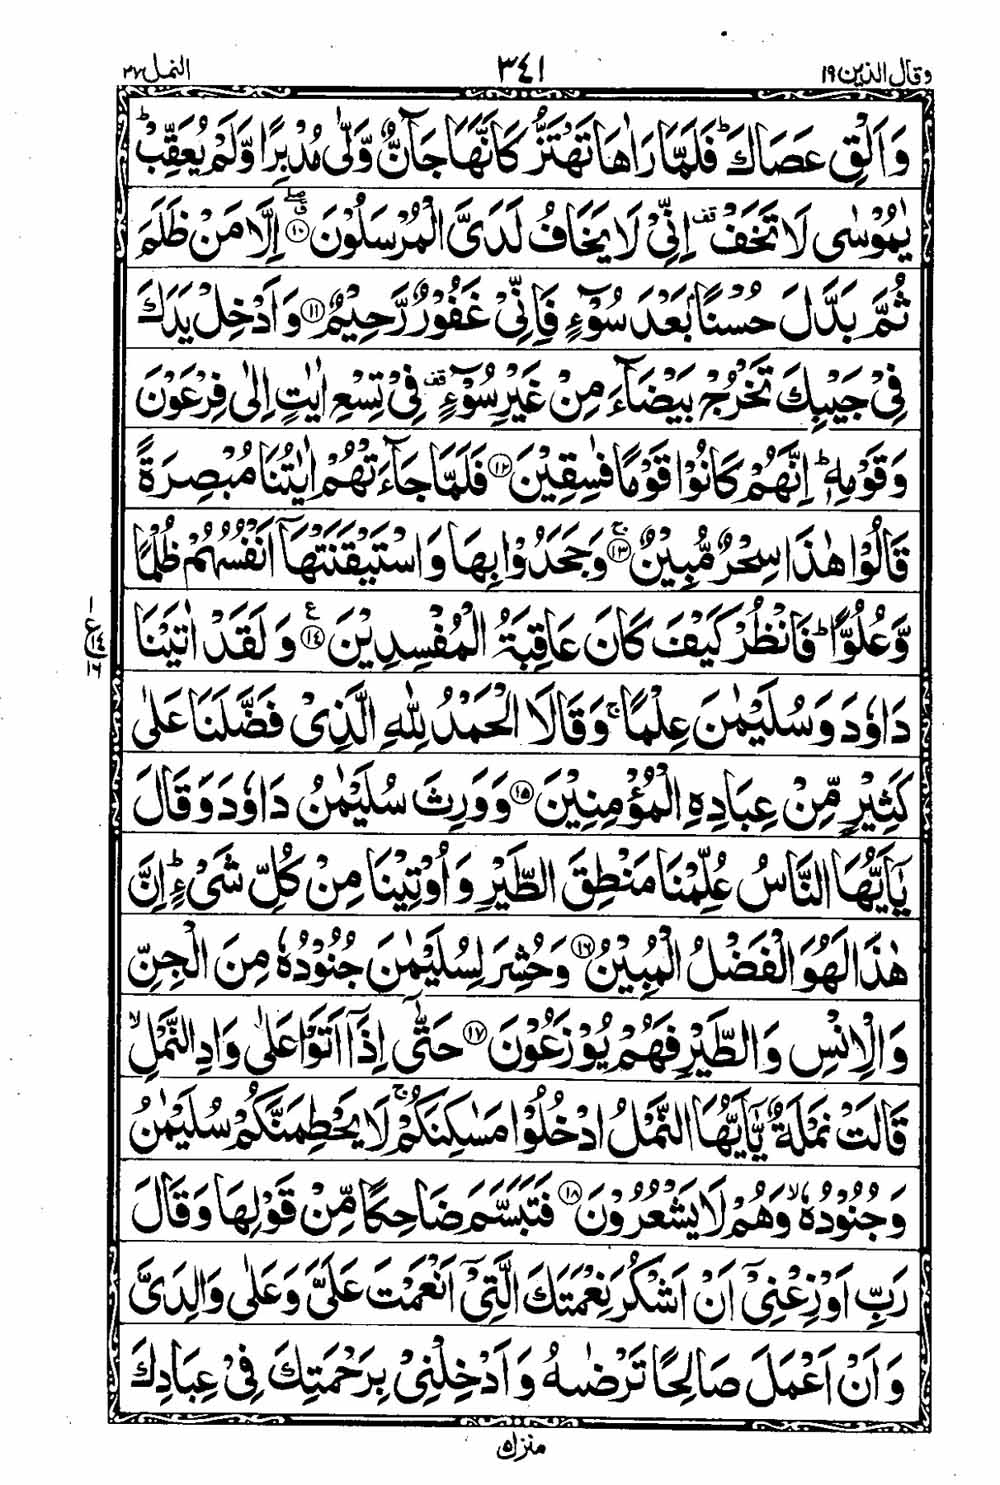 وقال الذين ١٩
٣٤١
النمل ٢٧
وَاَلْقِ عَصَاكَ ؕ فَلَمَّا رَاٰهَا تَهْتَزُّ كَاَنَّهَا جَآنٌّ وَّلّٰى مُدْبِرًا وَّلَمْ يُعَقِّبْ ؕ
يٰمُوْسٰى لَا تَخَفْ قف اِنِّيْ لَا يَخَافُ لَدَيَّ الْمُرْسَلُوْنَ ۝١٠ اِلَّا مَنْ ظَلَمَ
ثُمَّ بَدَّلَ حُسْنًاۢ بَعْدَ سُوْٓءٍ فَاِنِّيْ غَفُوْرٌ رَّحِيْمٌ ۝١١ وَاَدْخِلْ يَدَكَ
فِيْ جَيْبِكَ تَخْرُجْ بَيْضَآءَ مِنْ غَيْرِ سُوْٓءٍ قف فِيْ تِسْعِ اٰيٰتٍ اِلٰى فِرْعَوْنَ
وَقَوْمِهٖ ؕ اِنَّهُمْ كَانُوْا قَوْمًا فٰسِقِيْنَ ۝١٢ فَلَمَّا جَآءَتْهُمْ اٰيٰتُنَا مُبْصِرَةً
قَالُوْا هٰذَا سِحْرٌ مُّبِيْنٌ ۝١٣ۚ وَجَحَدُوْا بِهَا وَاسْتَيْقَنَتْهَاۤ اَنْفُسُهُمْ ظُلْمًا
وَّعُلُوًّا ؕ فَانْظُرْ كَيْفَ كَانَ عَاقِبَةُ الْمُفْسِدِيْنَ ۝١٤ ع وَلَقَدْ اٰتَيْنَا
دَاوٗدَ وَسُلَيْمٰنَ عِلْمًا ۚ وَقَالَا الْحَمْدُ لِلّٰهِ الَّذِيْ فَضَّلَنَا عَلٰى
كَثِيْرٍ مِّنْ عِبَادِهِ الْمُؤْمِنِيْنَ ۝١٥ وَوَرِثَ سُلَيْمٰنُ دَاوٗدَ وَقَالَ
يٰۤاَيُّهَا النَّاسُ عُلِّمْنَا مَنْطِقَ الطَّيْرِ وَاُوْتِيْنَا مِنْ كُلِّ شَيْءٍ ؕ اِنَّ
هٰذَا لَهُوَ الْفَضْلُ الْمُبِيْنُ ۝١٦ وَحُشِرَ لِسُلَيْمٰنَ جُنُوْدُهٗ مِنَ الْجِنِّ
وَالْاِنْسِ وَالطَّيْرِ فَهُمْ يُوْزَعُوْنَ ۝١٧ حَتّٰۤى اِذَاۤ اَتَوْا عَلٰى وَادِ النَّمْلِ ۙ
قَالَتْ نَمْلَةٌ يّٰۤاَيُّهَا النَّمْلُ ادْخُلُوْا مَسٰكِنَكُمْ ۚ لَا يَحْطِمَنَّكُمْ سُلَيْمٰنُ
وَجُنُوْدُهٗ ۙ وَهُمْ لَا يَشْعُرُوْنَ ۝١٨ فَتَبَسَّمَ ضَاحِكًا مِّنْ قَوْلِهَا وَقَالَ
رَبِّ اَوْزِعْنِيْۤ اَنْ اَشْكُرَ نِعْمَتَكَ الَّتِيْۤ اَنْعَمْتَ عَلَيَّ وَعَلٰى وَالِدَيَّ
وَاَنْ اَعْمَلَ صَالِحًا تَرْضٰىهُ وَاَدْخِلْنِيْ بِرَحْمَتِكَ فِيْ عِبَادِكَ
منزل ٥